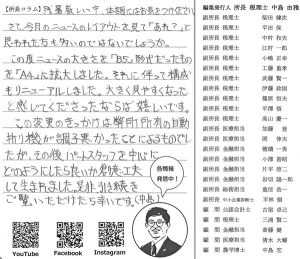 【所長コラム】残暑厳しい今、体調にはお気をつけ下さい
さて、今月のニュースのレイアウトを見て「あれ？」と
思われた方も多いのではないでしょうか。
この度ニュースの大きさを「B5」形式だったもの
を「A4」に拡大しました。それに伴って構成
もリニューアルしました。大きく見やすくなった
と感じてくださったならば嬉しいです。
この変更のきっかけは弊所所有の自動
折り機が調子悪かったことによるものでし
たが、その後パートスタッフを中心に
どのようにしたら良いか創意工夫
して生まれました。是非引き続き
ご覧いただけたら幸いです。(中島)
各情報
発信中！
YouTube
Facebook
Instagram
編集発行人 所長 税理士 中島 由雅
副所長 税理士
副所長 税理士 平田 保
副所長 税理士 中村 和夫
副所長 税理士 江村 一郎
副所長 税理士 小嶋 正志
副所長 税理士 工藤 嘉孝
副所長 税理士 武藤 賢一
副所長 税理士 伊藤 政則
副所長 税理士 篠原 恒夫
副所長 税理士 中澤 信
副所長 税理士 高山 慶一
副所長 医療担当 加藤 登
副所長 医療担当 岡 伸夫
副所長 金融担当 徳橋 秀
副所長 金融担当 小澤 善昭
副所長 金融担当 片平 啓二
副所長 金融担当 岩切 陽一郎
副所長 総務担当 重信 浩一
副所長 中小企業診断士 平林 潮
顧問 公認会計士 古屋 尚己
顧問 金融担当 斎藤 登三
顧問 医療担当 清水 大輔
顧問 農学博士 中島 宏